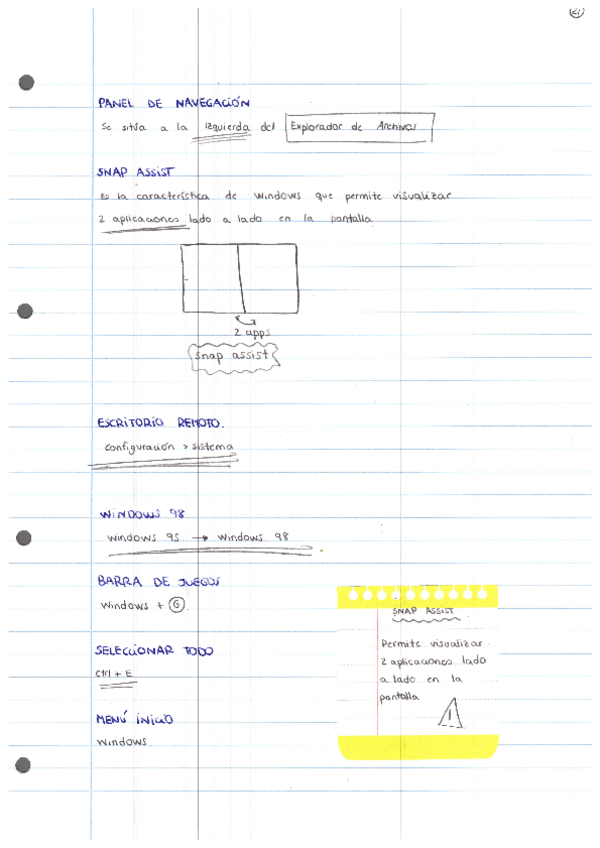 21
PANEL DE NAVEGACIÓN
Se sitúa a la izquierda del Explorador de Archivos
SNAP ASSIST
Es la característica de Windows que permite visualizar
2 aplicaciones lado a lado en la pantalla
2 apps
snap assist
ESCRITORIO REMOTO.
configuración > sistema
WINDOWS 98
windows 95 → windows 98
BARRA DE JUEGOS
Windows + G
SELECCIONAR TODO
Ctrl + E
MENÚ INICIO
Windows.
SNAP ASSIST
Permite visualizar
2 aplicaciones lado
a lado en la
pantalla
!